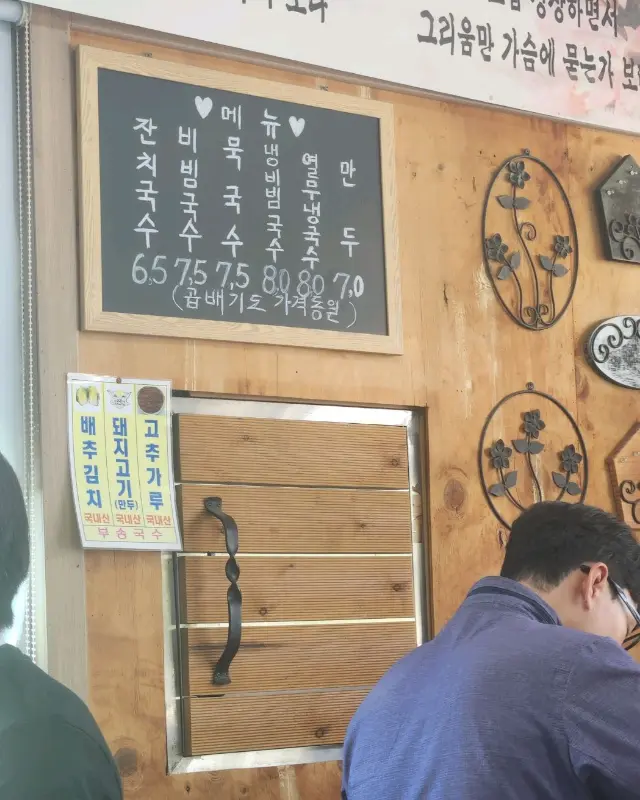 그리움만 가슴에 묻는가 보
♥메뉴♥
잔치국수 6,5
비빔국수 7,5
메묵국수 7,5
냉비빔국수 8,0
열무냉국수 8,0
만두 7,0
(곱배기도 가격동일)
배추김치 국내산
돼지고기 (만두) 국내산
고추가루 국내산
부송국수